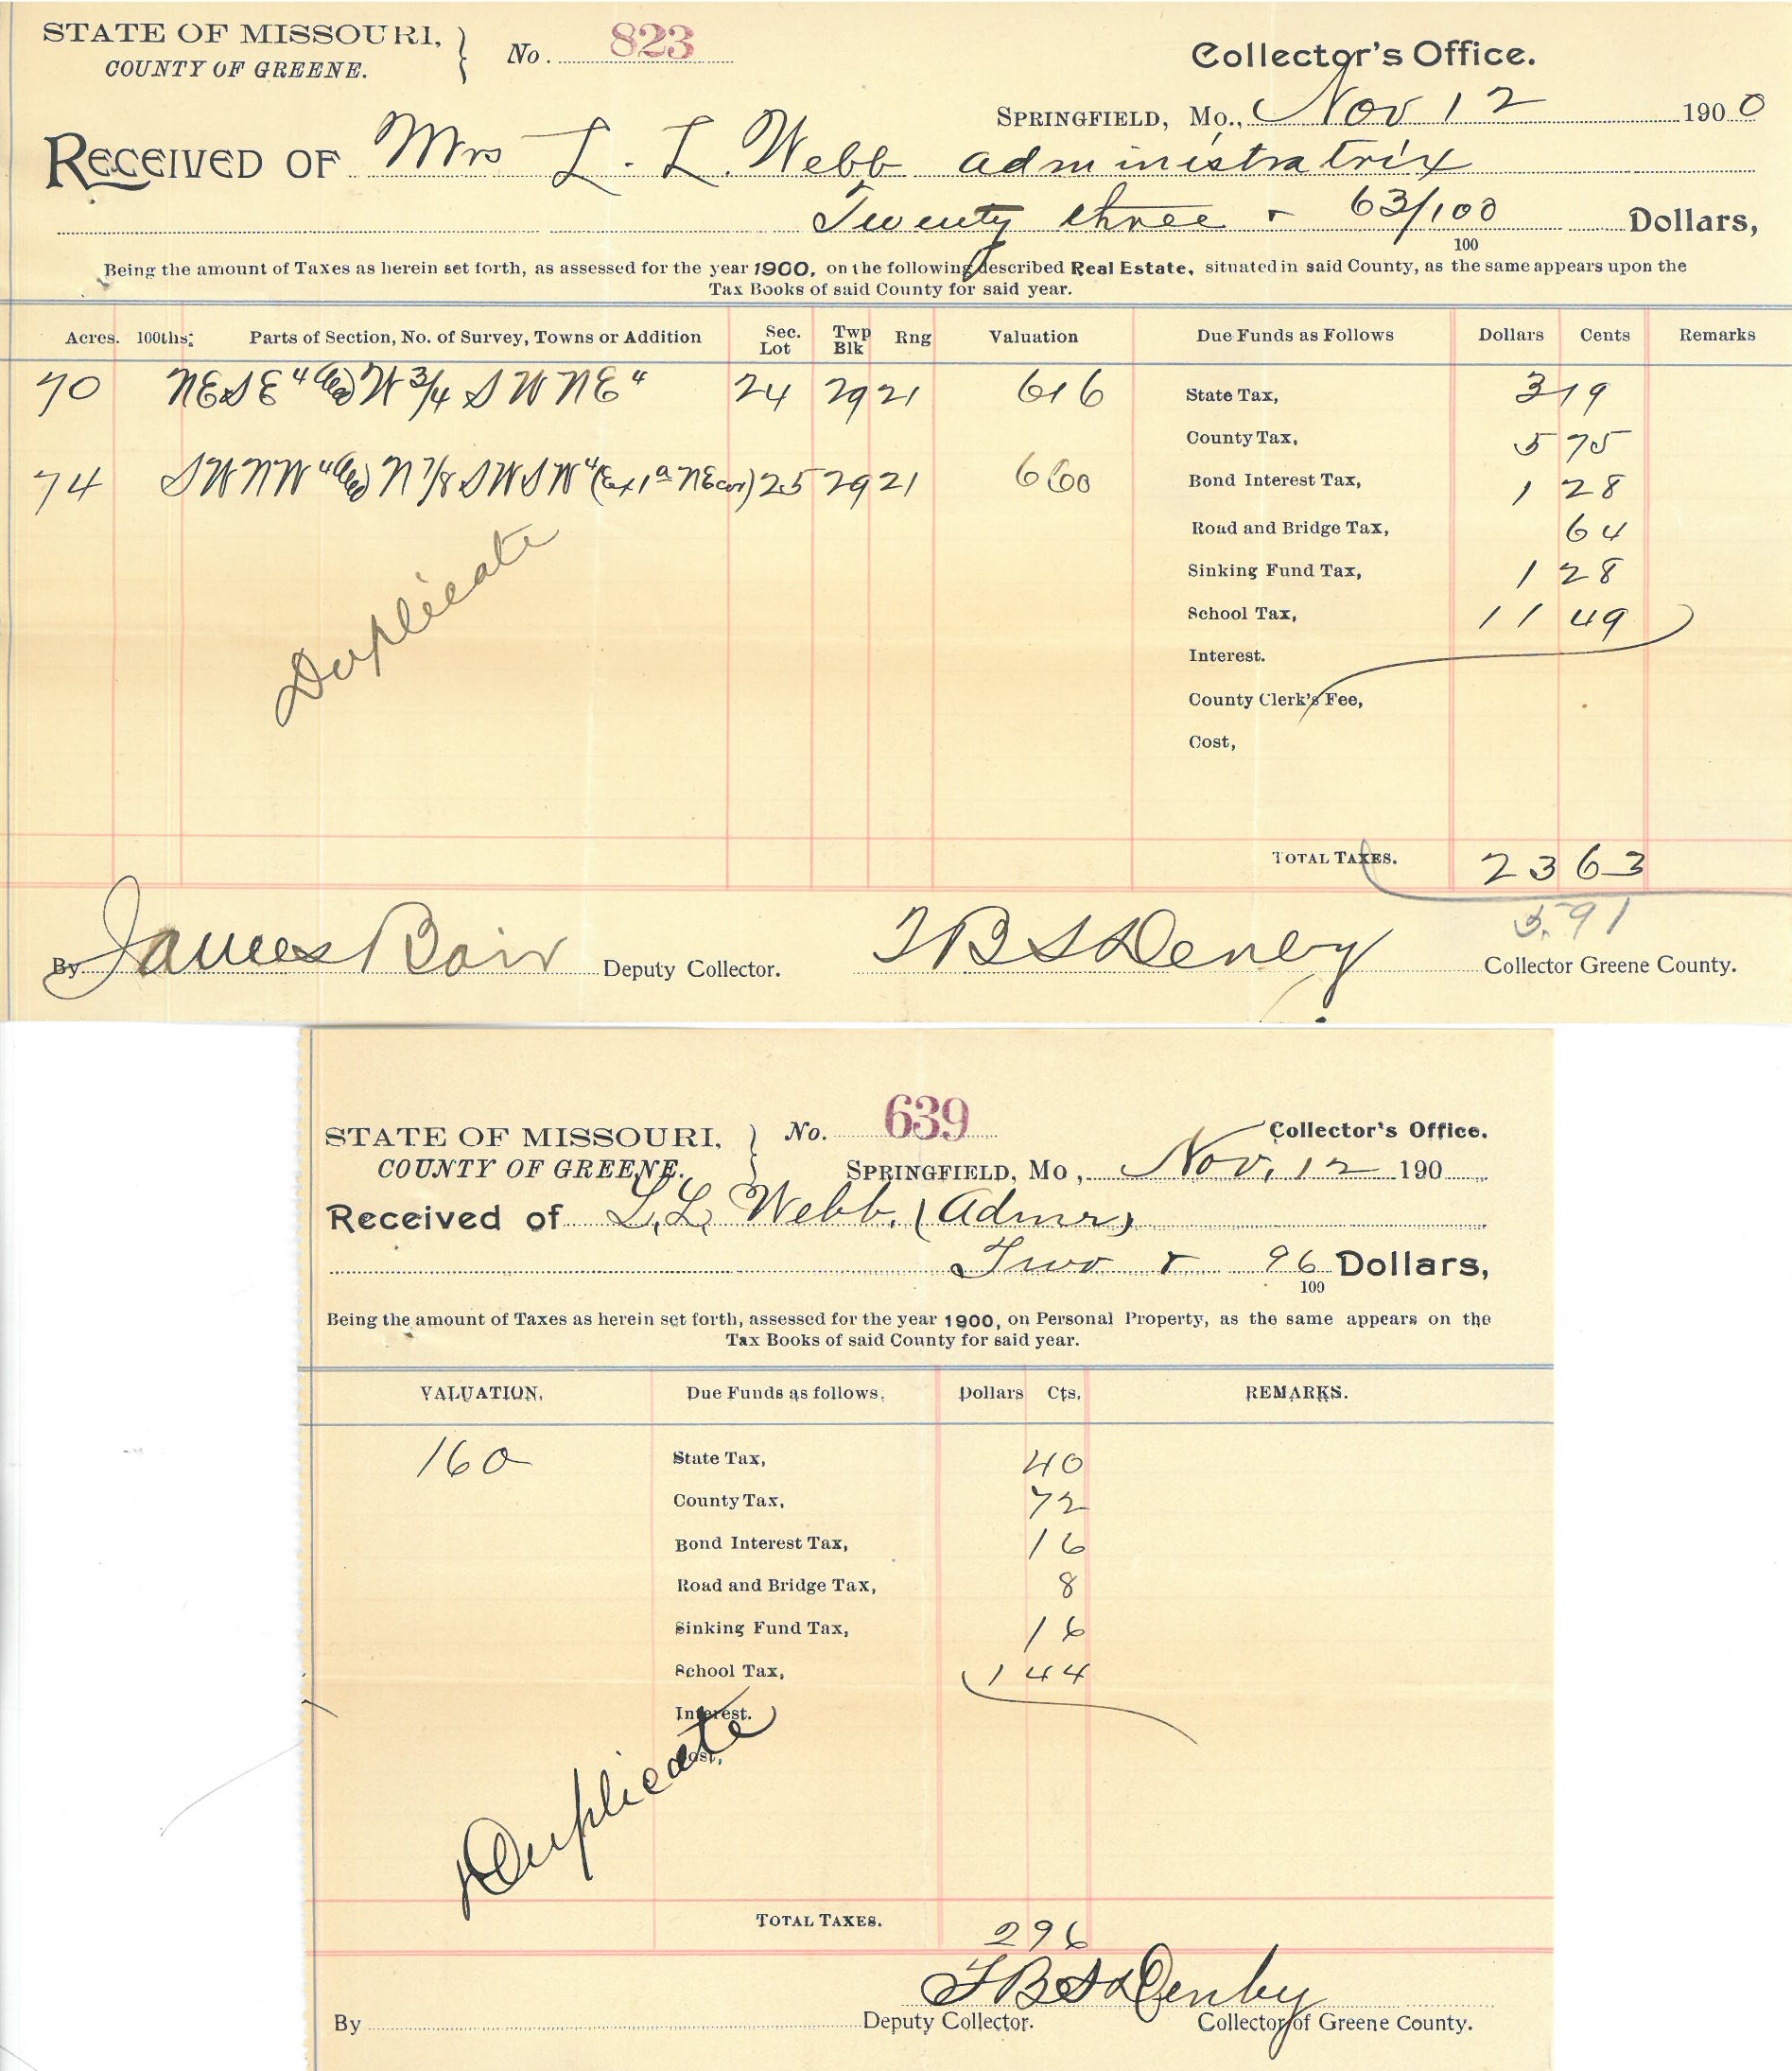 STATE OF MISSOURI, } No. 823 Collector's Office.
COUNTY OF GREENE.
SPRINGFIELD, Mo., Nov 12 1900
RECEIVED OF Mrs L. L. Webb administratrix
Twenty three & 63/100 Dollars,
100
Being the amount of Taxes as herein set forth, as assessed for the year 1900, on the following described Real Estate, situated in said County, as the same appears upon the
Tax Books of said County for said year.
Acres. 100ths; Parts of Section, No. of Survey, Towns or Addition Sec. Lot Twp Blk Rng Valuation Due Funds as Follows Dollars Cents Remarks
70 NE SE 4 W 3/4 S W NE 4 24 29 21 616 State Tax, 3 19
County Tax, 5 75
74 SW NW 4 N 7/8 SW SW 4 (Ex 1 a NE cor) 25 29 21 660 Bond Interest Tax, 1 28
Road and Bridge Tax, 64
Sinking Fund Tax, 1 28
School Tax, 11 49
Duplicate
Interest.
County Clerk's Fee,
Cost,
TOTAL TAXES. 23 63
3.91
By James Bair Deputy Collector. Collector Greene County.
STATE OF MISSOURI, } No. 639 Collector's Office.
COUNTY OF GREENE. SPRINGFIELD, Mo, Nov. 12 190
Received of L. L. Webb. (Admr)
Two & 96 Dollars,
100
Being the amount of Taxes as herein set forth, assessed for the year 1900, on Personal Property, as the same appears on the
Tax Books of said County for said year.
VALUATION. Due Funds as follows. Dollars Cts. REMARKS.
160 State Tax, 40
County Tax, 72
Bond Interest Tax, 16
Road and Bridge Tax, 8
Sinking Fund Tax, 16
School Tax, 1 44
Interest.
Cost,
Duplicate
TOTAL TAXES. 2 96
Denby
By Deputy Collector. Collector of Greene County.